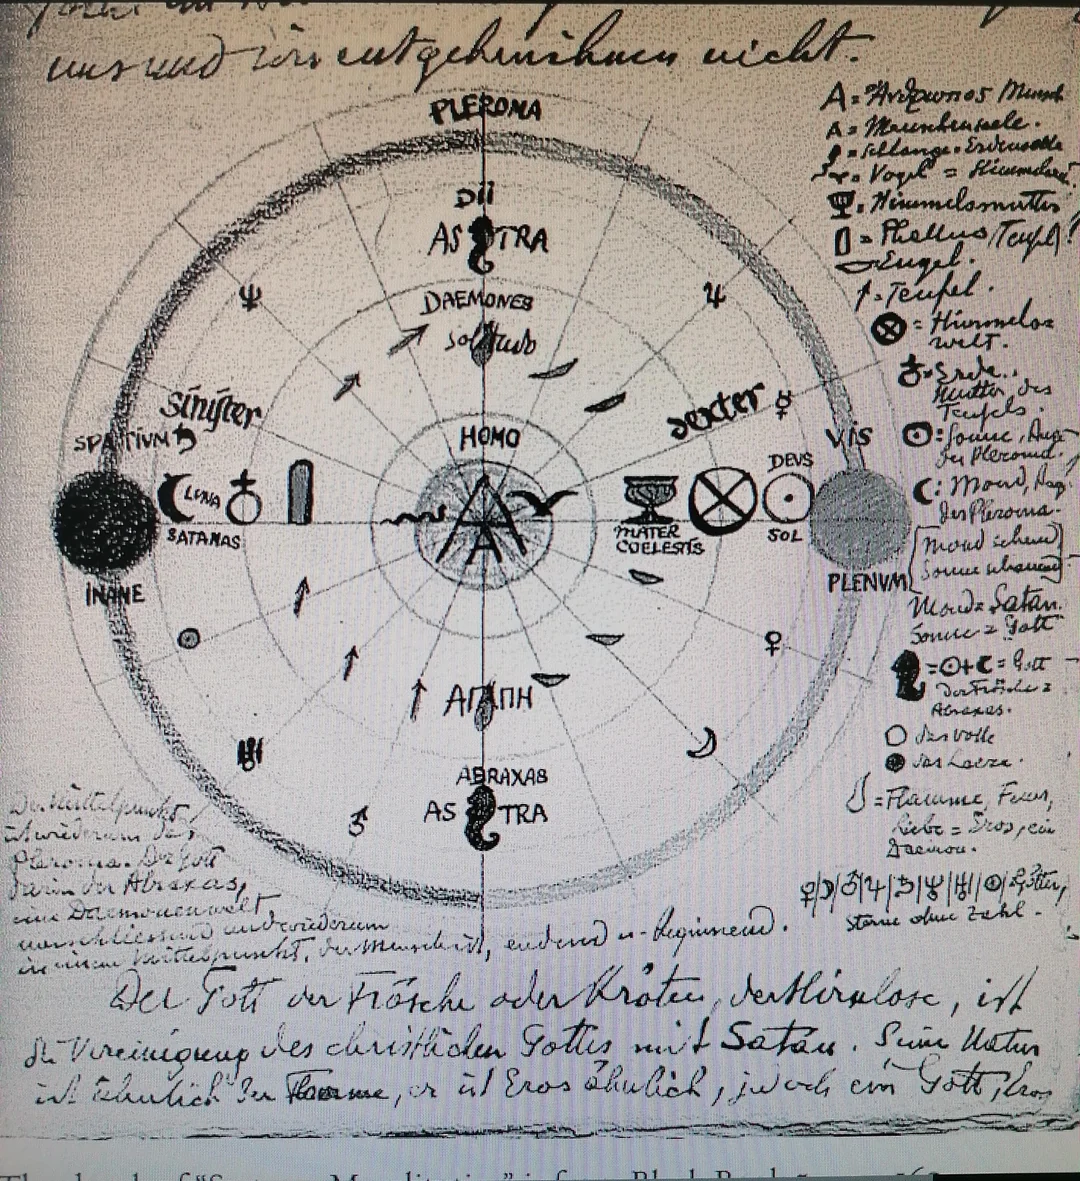 uns und wir entgehn ihnen nicht.
PLEROMA
DII
ASTRA
DAEMONES
HOMO
Sinister
SPATIUM
LUNA
SATANAS
INANE
Dexter
VIS
DEVS
SOL
MATER
COELESTIS
PLENUM
A
ΑΓΑΠΗ
ABRAXAS
ASTRA
A = Ἄνθρωπος Mensch
A = Menschenseele.
= Schlange = Erdenseele
= Vogel = Himmelsseele.
= Himmelsmutter
= Phallus (Teufel)
= Engel.
= Teufel.
= Himmels=
welt.
= Erde,
Mutter des
Teufels.
= Sonne, Auge
des Pleroma.
: Mond, Aug.
des Pleroma.
Mond
Sonne
Mond = Satan.
Sonne = Gott
= ☉+☾ = Gott
der Frösche =
Abraxas.
das Volle
das Leere.
= Flamme, Feuer,
Liebe = Eros, ein
Daemon.
Götter,
Sterne ohne Zahl.
Der Mittelpunkt
ist wiederum das
Pleroma. Der Gott
darin der Abraxas,
eine Daemonenwelt
umschliessend und wiederum
in einem Mittelpunkt, der Mensch ist, endend u. beginnend.
Der Gott der Frösche oder Kröten, der Hirnlose, ist
die Vereinigung des christlichen Gottes mit Satan. Seine Natur
ist ähnlich der Flamme, er ist Eros ähnlich, jedoch ein Gott, Eros